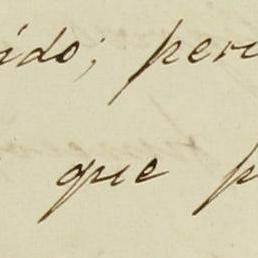 ido; peru
que p